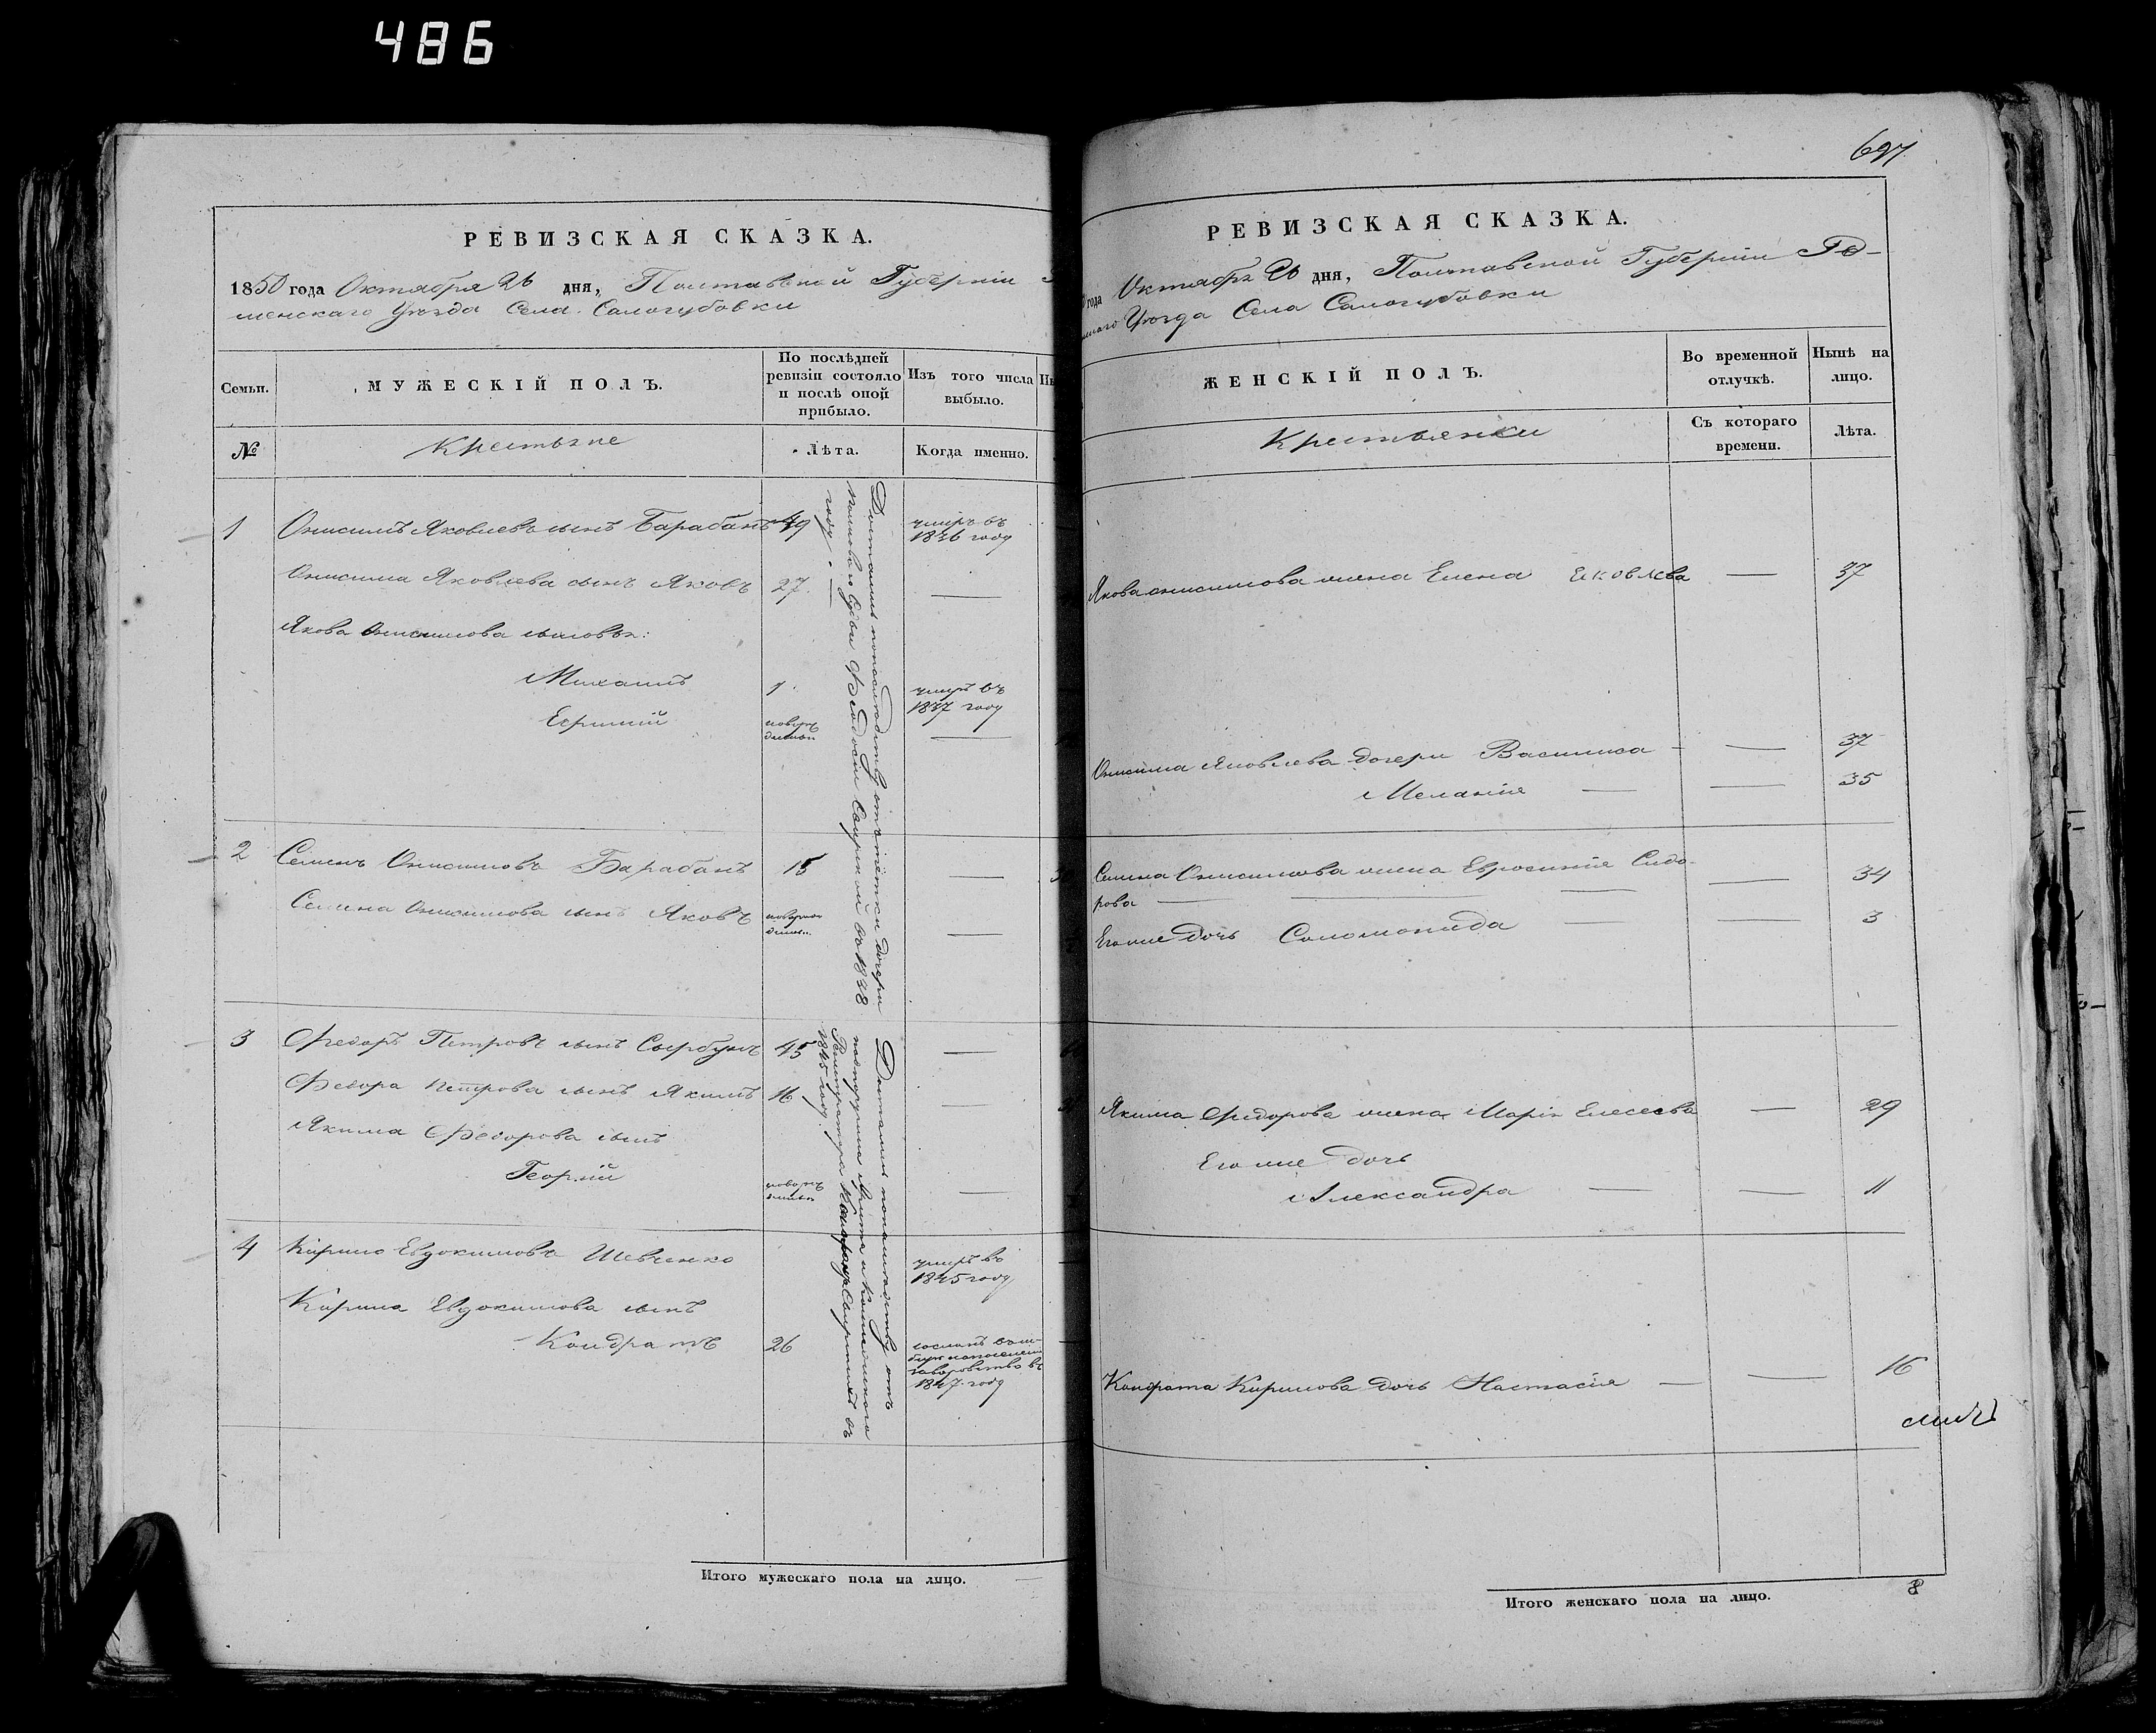 486
РЕВИЗСКАЯ СКАЗКА.
1850 года Октября 26 дня, Полтавской Губерніи
менскаго Уѣзда Села Салогубовки
Семьи.
МУЖЕСКІЙ ПОЛЪ.
По послѣдней
ревизіи состояло
и послѣ оной
прибыло.
Изъ того числа
выбыло.
№
Крестьяне
Лѣта.
Когда именно.
1
Онисимъ Яковлевъ сынъ Барабанъ 49
умеръ въ
1836 году
Онисима Яковлева сынъ Яковъ 27
Якова Онисимова сыновья:
Михаилъ 1
умеръ въ
1837 году
Евфимій
новорож
денный
Достались по наслѣдству отъ тетки дочери
Феодосьи въ 1838
году
2
Семенъ Онисимовъ Барабанъ 15
Семена Онисимова сынъ Яковъ
новорож
денный
3
Федоръ Петровъ сынъ 45
Федора Петрова сынъ Якимъ 16
Якима Федорова сынъ
Георгій
новорож
денный
Достались по наслѣдству отъ
1845 году
4
Кирило Евдокимовъ Шевченко
умеръ въ
1845 году
Кирила Евдокимова сынъ
Кондратъ 26
сосланъ въ Си-
бирь на поселеніе
за воровство въ
1847 году
Итого мужескаго пола на лицо.
697
РЕВИЗСКАЯ СКАЗКА.
года Октября 26 дня, Полтавской Губерніи Ро-
Уѣзда Села Салогубовки
ЖЕНСКІЙ ПОЛЪ.
Во временной
отлучкѣ.
Нынѣ на
лицо.
Крестьянки
Съ котораго
времени.
Лѣта.
Якова Онисимова жена Елена Яковлева — 37
Онисима Яковлева дочери Василиса — 37
Меланія — 35
Семена Онисимова жена Евросинія Сидо- — 34
рова
Его же дочь Соломонида — 3
Якима Федорова жена Марія Елесеева — 29
Его же дочь
Александра — 11
Кондрата Кирилова дочь Настасія — 16
Итого женскаго пола на лицо. 8